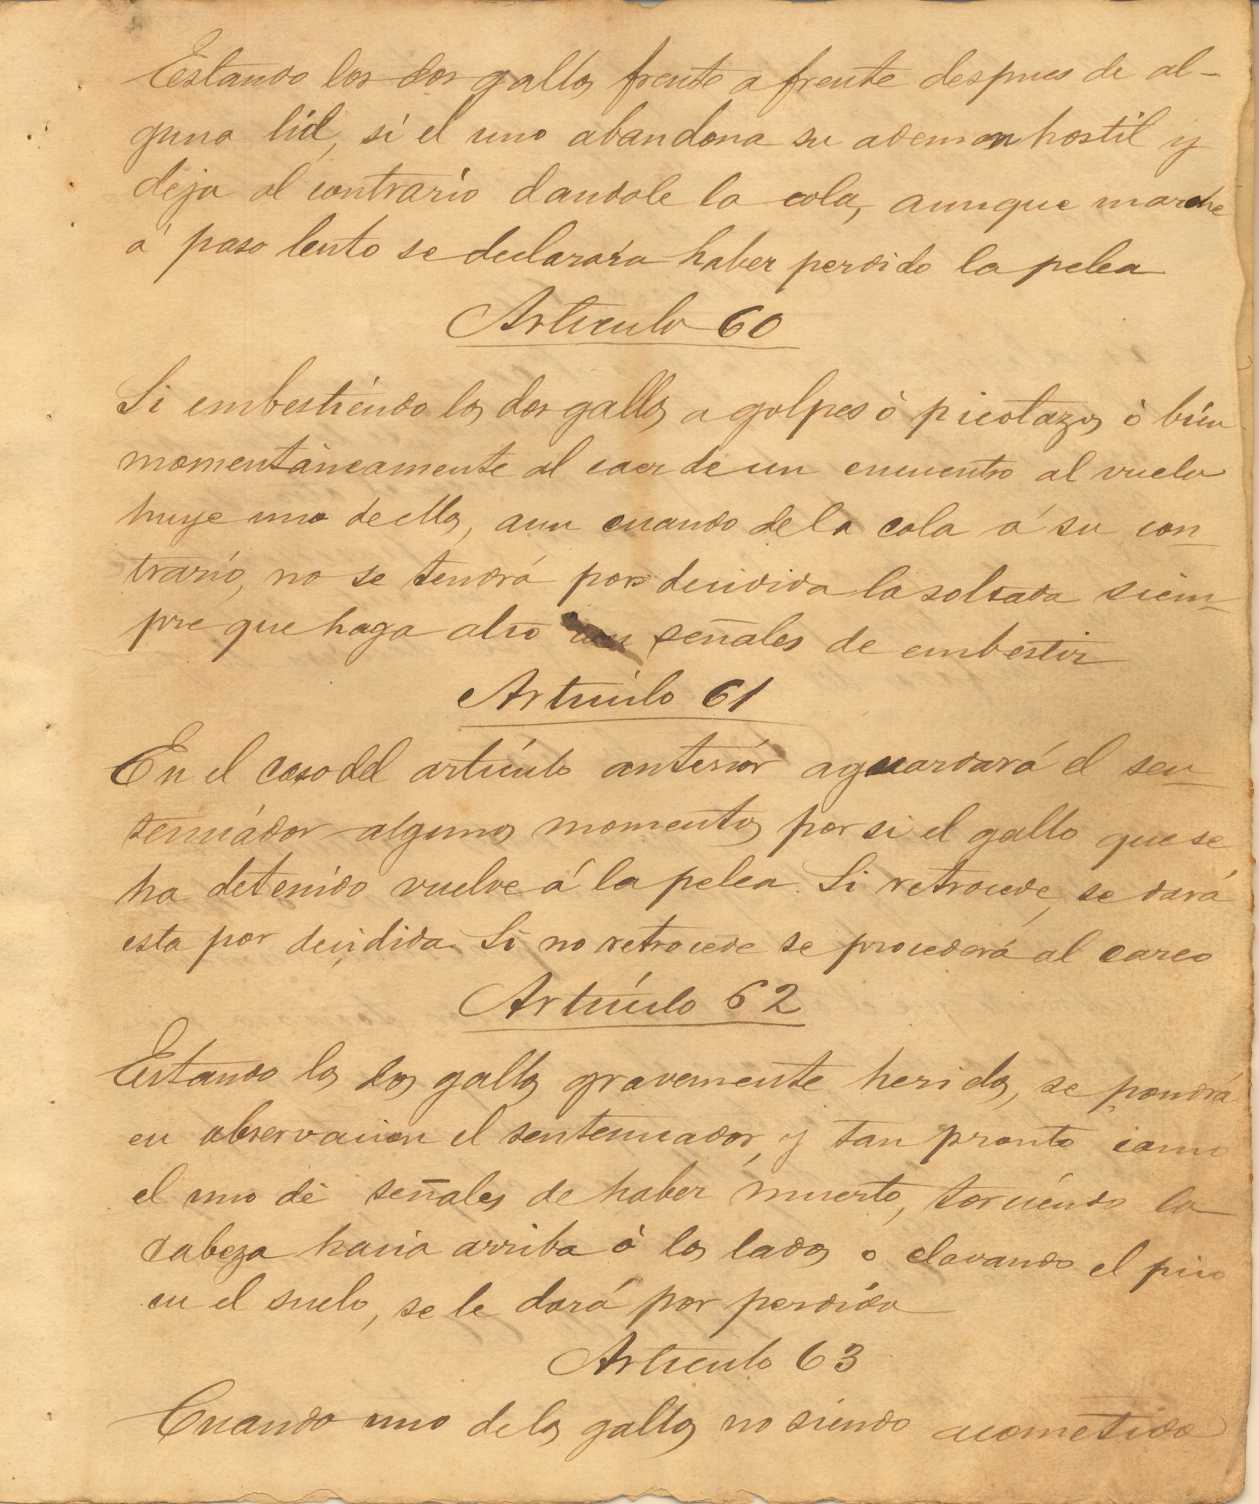 Estando los dos gallos frente a frente despues de al-
guna lid, si el uno abandona su ademan hostil y
deja al contrario dandole la cola, aunque marche
á paso lento se declarara haber perdido la pelea
Articulo 60
Si embestiéndo los dos gallos a golpes ò picotazos ò bién
momentáneamente al caer de un encuentro al vuelo
huye uno de ellos, aun cuando de la cola á su con-
trario, no se tendrá por decidida la soltada siem-
pre que haga alto con señales de embestir
Artículo 61
En el caso del artículo anteriór aguardará el sen-
tenciádor algunos momentos por si el gallo que se
ha detenido vuelve á la pelea. Si retrocede, se dará
esta por decidida. Si no retrocede se procederá al careo
Artículo 62
Estando los dos gallos gravemente heridos, se pondrá
en observacion el sentenciador, y tan pronto como
el uno dé señales de haber muerto, torciéndo la
cabeza hacia arriba ò los lados o clavando el pico
en el suelo, se le dará por perdida
Articulo 63
Cuando uno de los gallos no siendo acometido